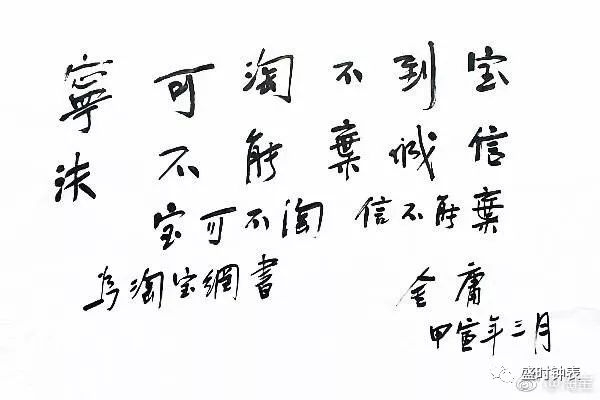 寧可淘不到宝
决不能棄诚信
宝可不淘 信不能棄
为淘宝網書 金庸
甲寅年三月
盛时钟表